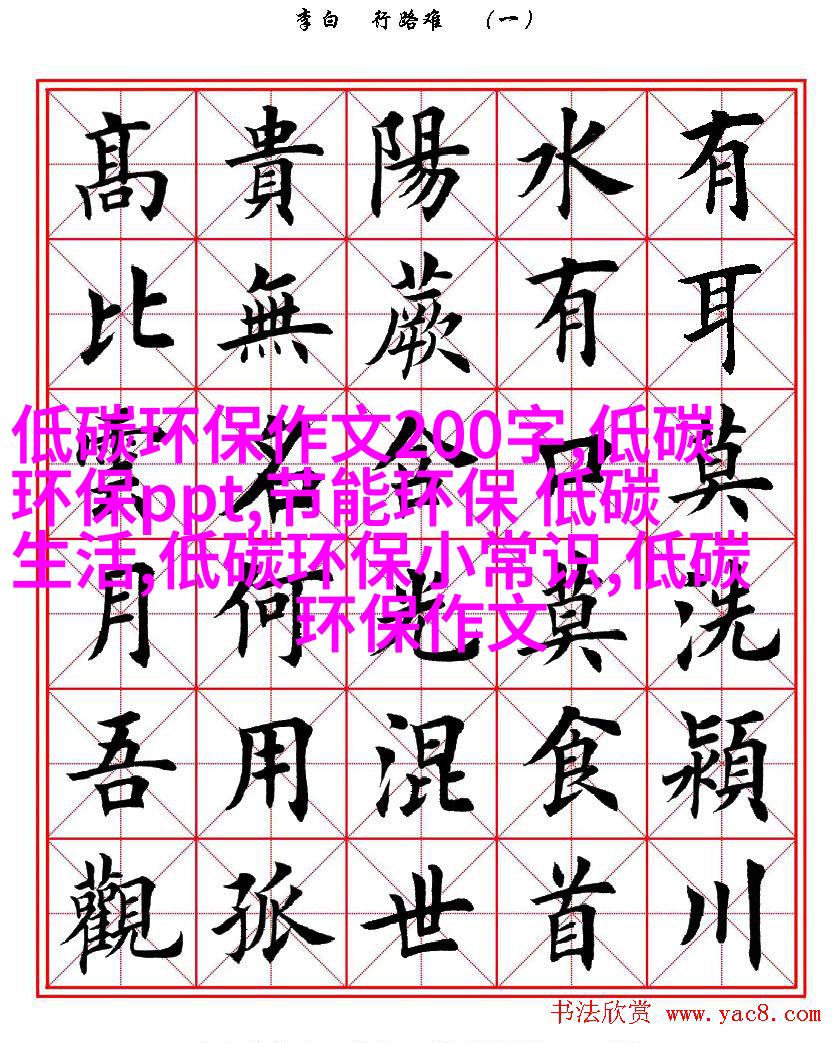 李白 行路难 （一）
有耳莫洗潁川
水有口莫食首
陽蕨含光混世
貴無名何用孤
髙比雲月吾觀
低碳环保作文200字,低碳
环保ppt,节能环保 低碳
生活,低碳环保小常识,低碳
环保作文
书法欣赏 www.yac8.com